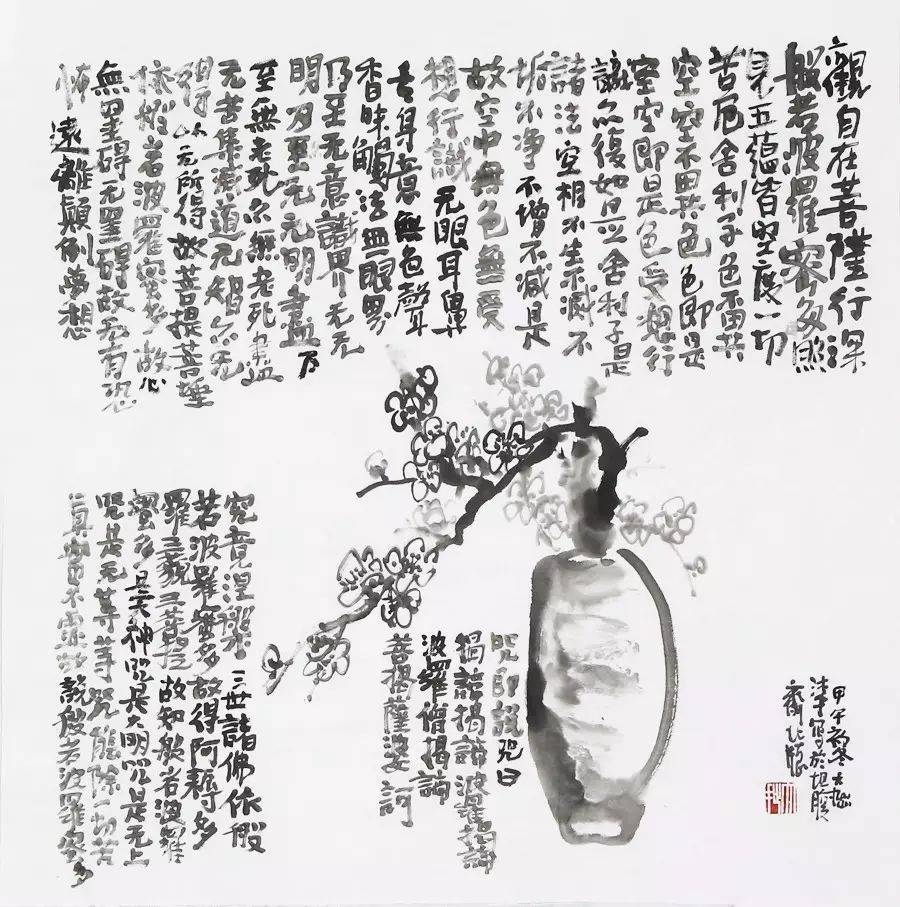 觀自在菩薩行深
般若波羅密多照
見五蘊皆空度一切
苦厄舍利子色不異
空空不異色色即是
空空即是色受想行
識亦復如是舍利子是
諸法空相不生不滅不
垢不净不增不減是
故空中無色無受
想行識无眼耳鼻
舌身意無色聲
香味觸法無眼界
乃至无意識界无无
明乃至无无明盡乃
至無老死亦無老死盡
无苦集滅道无智亦无
得以无所得故菩提薩埵
依般若波羅密多故心
無罣碍无罣碍故无有恐
怖遠離顛倒夢想
究竟涅槃三世諸佛依般
若波羅密多故得阿耨多
羅三藐三菩提故知般若波羅
蜜多是大神咒是大明咒是无上
咒是无等等咒能除一切苦
真實不虛故說般若波羅密多
咒即說咒曰
揭諦揭諦波羅揭諦
波羅僧揭諦
菩提薩婆訶
甲午